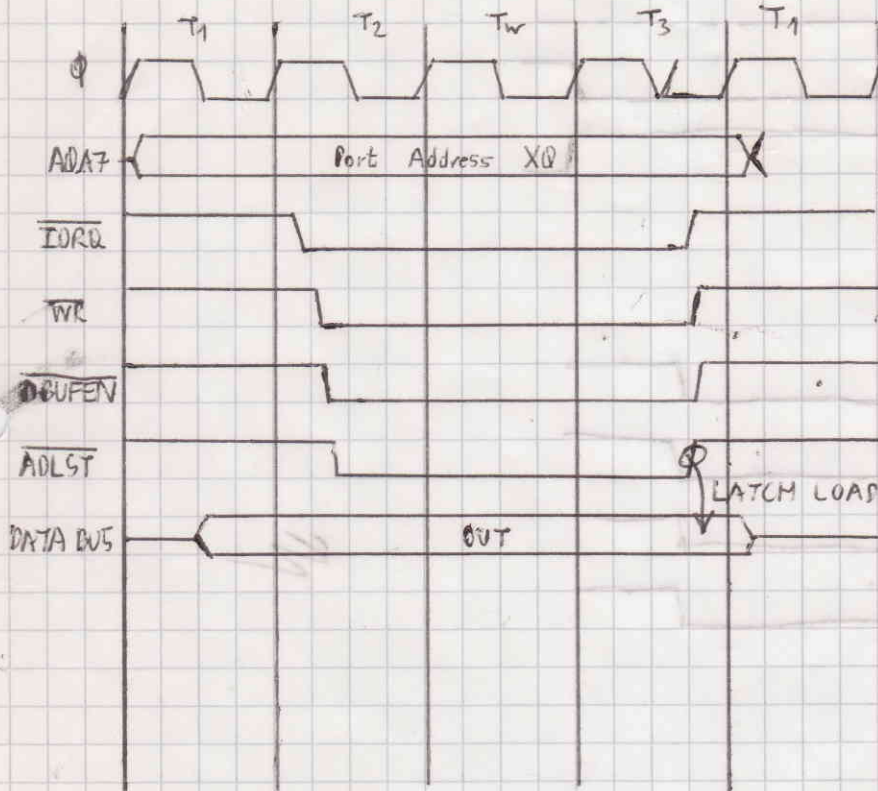 T1 T2 Tw T3 T1
Φ
A0A7 Port Address X0
IORQ
WR
DBUFEN
ADLST
LATCH LOAD
DATA BUS OUT